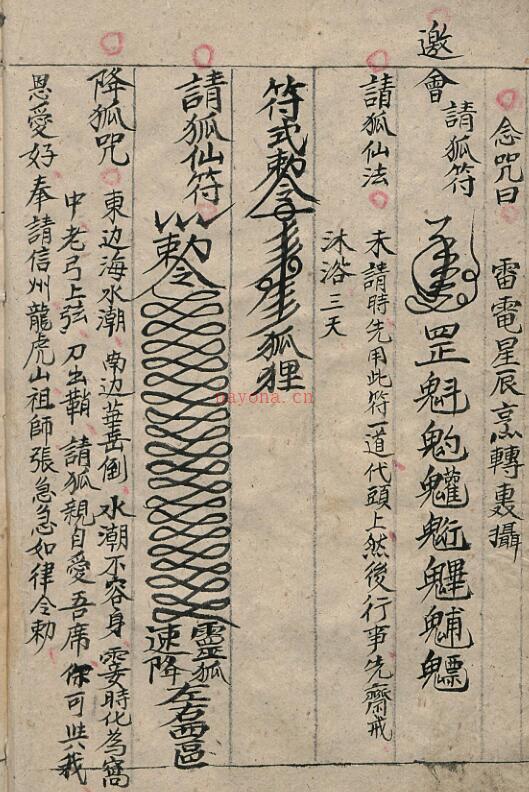 念咒曰 雷電星辰 轉轟攝
邀會 請狐符 罡魁
請狐仙法 未請時先用此符一道代頭上然後行事先齋戒
沐浴三天
符式敕令 狐狸
請狐仙符 敕令 靈狐速降 左右
降狐咒 東边海水潮 南边華岳倒 水潮不容身 霎時化為窩
中老弓上弦 刀出鞘 請狐親自愛吾席 你可共我
恩愛好 奉請信州龍虎山祖師張急急如律令勅
nayona.cn